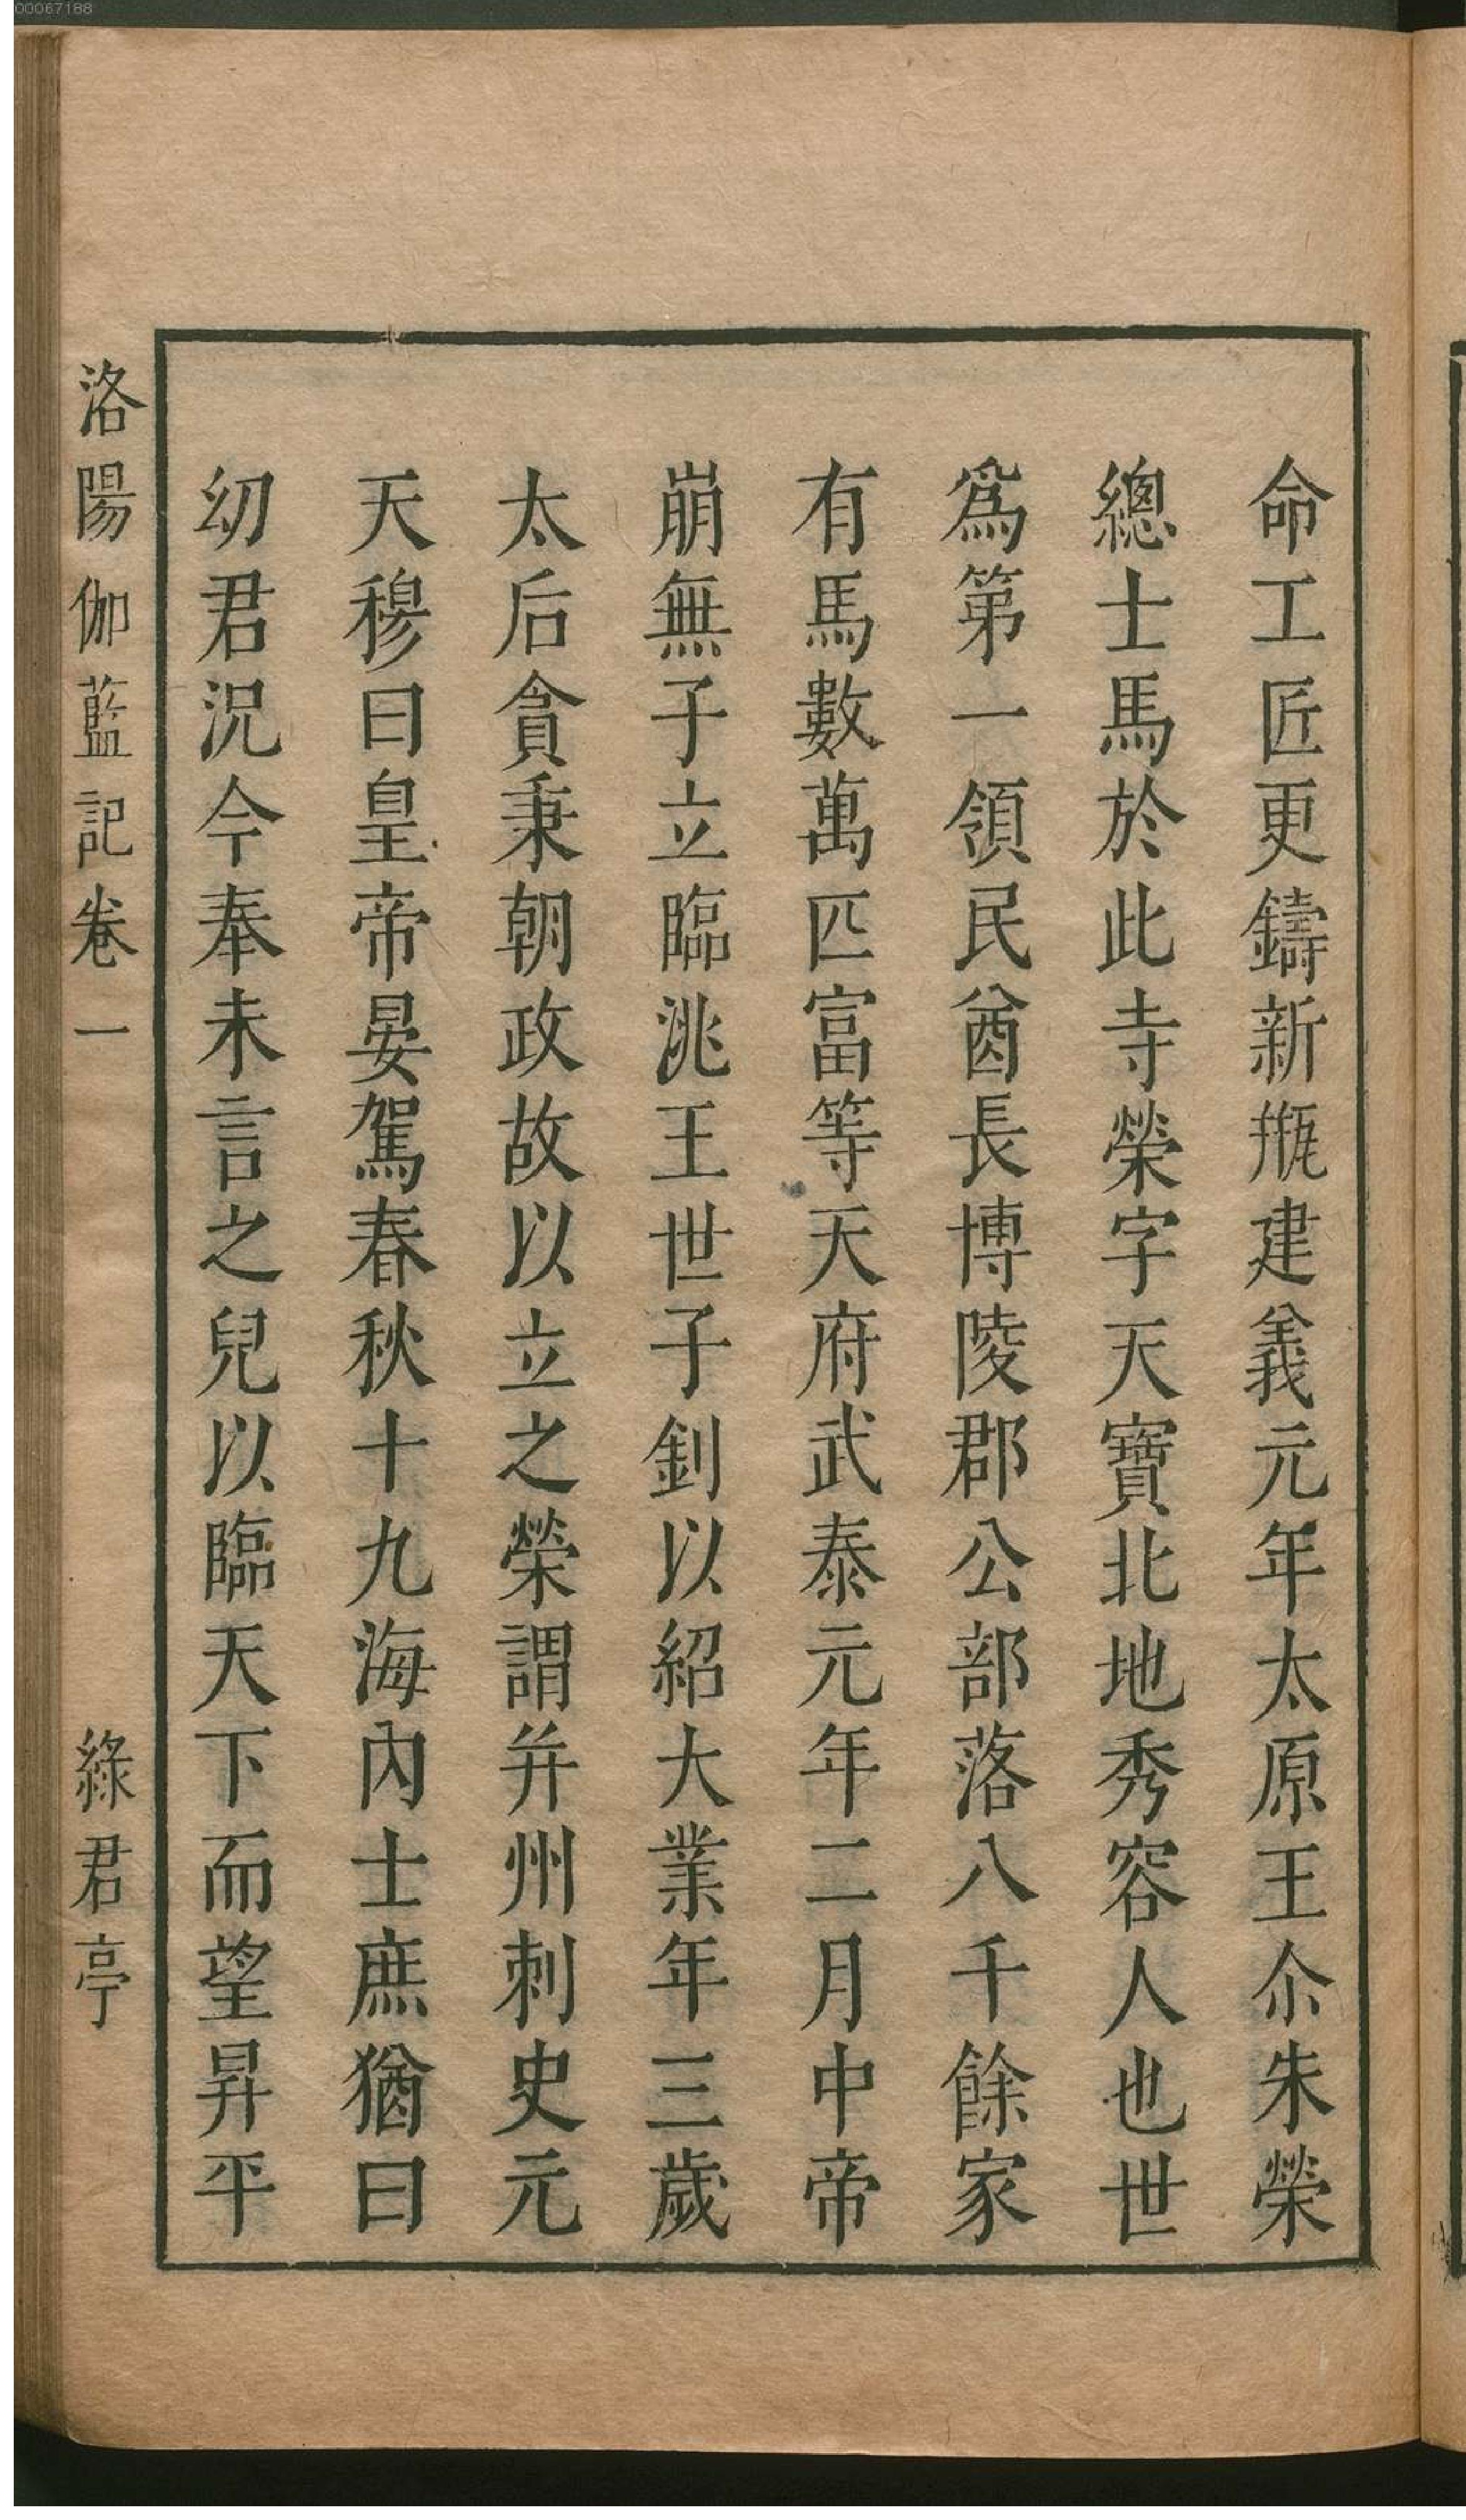 00067188
命工匠更鑄新瓶建義元年太原王尒朱榮
總士馬於此寺榮字天寶北地秀容人也世
爲第一領民酋長博陵郡公部落八千餘家
有馬數萬匹富等天府武泰元年二月中帝
崩無子立臨洮王世子釗以紹大業年三歲
太后貪秉朝政故以立之榮謂并州刺史元
天穆曰皇帝晏駕春秋十九海內士庶猶曰
幼君況今奉未言之兒以臨天下而望昇平
洛陽伽藍記卷一
綠君亭